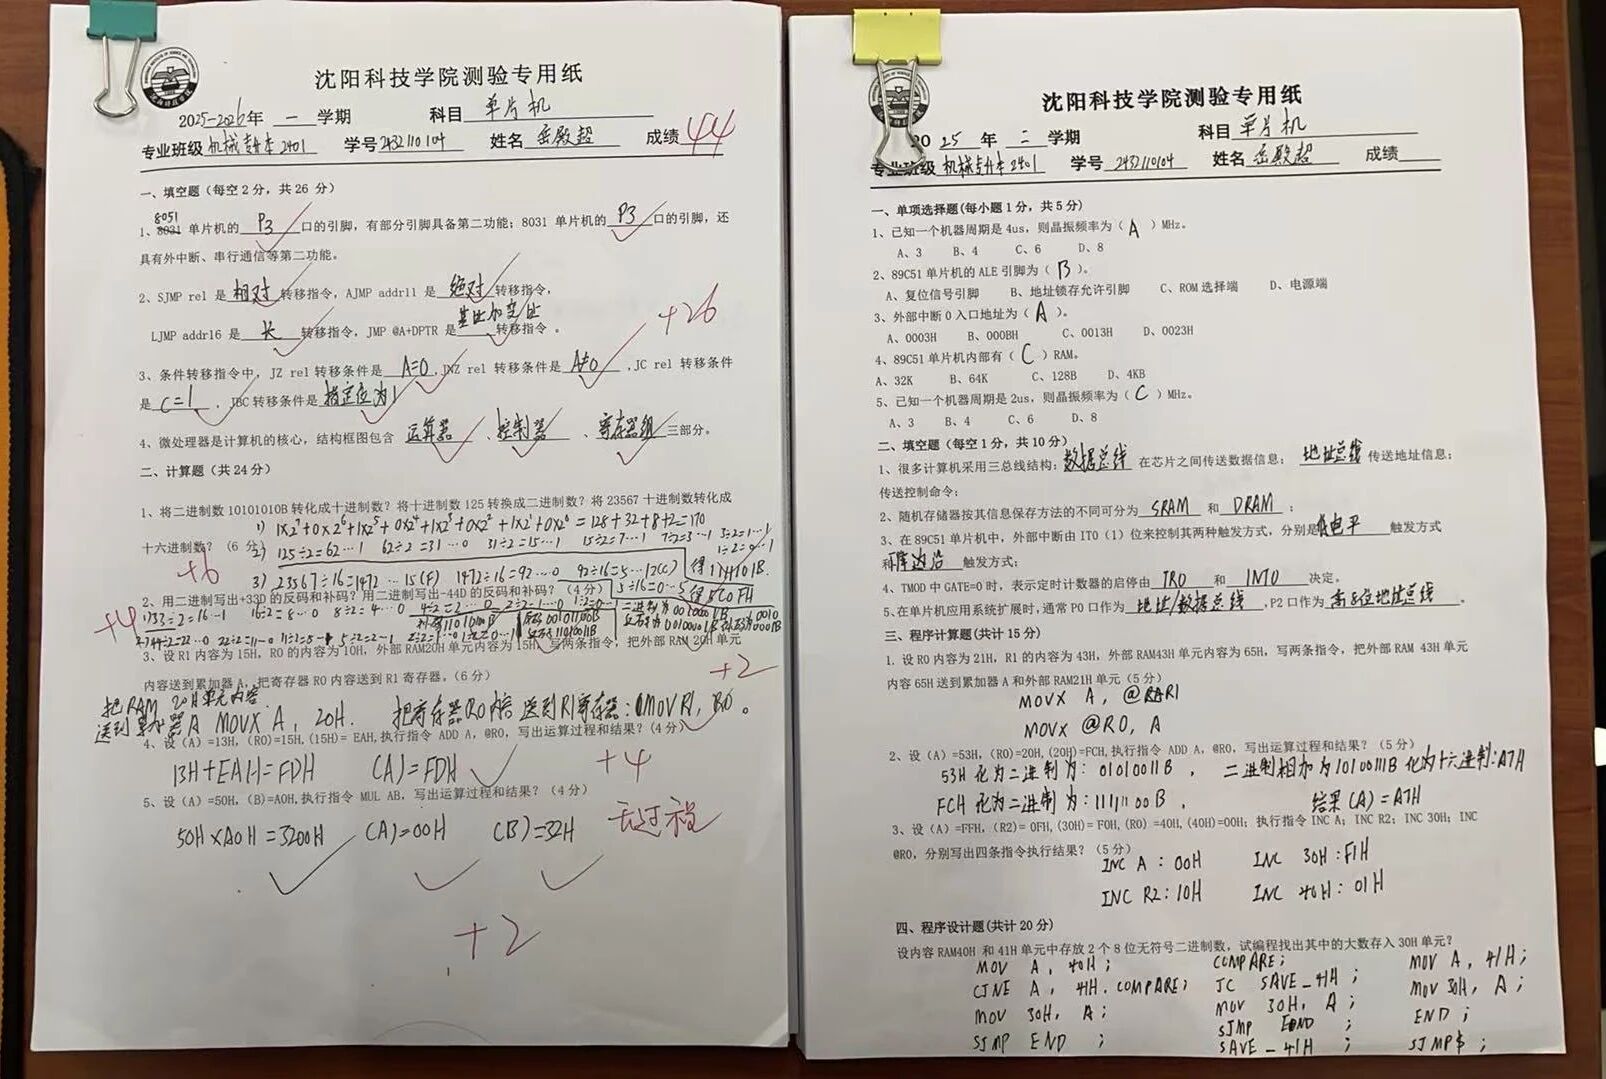 沈阳科技学院测验专用纸
2025-2026年 一 学期 科目 单片机
专业班级 机械专升本2401 学号 2432110104 姓名 岳殿超 成绩 44
一、填空题（每空2分，共26 分）
8051
1、8031 单片机的 P3 口的引脚，有部分引脚具备第二功能；8031 单片机的 P3 口的引脚，还
具有外中断、串行通信等第二功能。
2、SJMP rel 是 相对 转移指令，AJMP addr11 是 绝对 转移指令，
基址加变址
LJMP addr16 是 长 转移指令，JMP @A+DPTR 是 转移指令 。
+26
3、条件转移指令中，JZ rel 转移条件是 A=0 ,JNZ rel 转移条件是 A≠0 ,JC rel 转移条件
是 C=1 ，JBC转移条件是 指定位为1
4、微处理器是计算机的核心，结构框图包含 运算器 、控制器 、寄存器组 三部分。
二、计算题（共24分）
1、将二进制数10101010B转化成十进制数？将十进制数125转换成二进制数？将23567十进制数转化成
1) 1×2⁷+0×2⁶+1×2⁵+0×2⁴+1×2³+0×2²+1×2¹+0×2⁰=128+32+8+2=170
十六进制数？（6 分）
2) 125÷2=62…1 62÷2=31…0 31÷2=15…1 15÷2=7…1 7÷2=3…1 3÷2=1…1
1÷2=0…1
得1111101B.
+6
3) 23567÷16=1472…15(F) 1472÷16=92…0 92÷16=5…12(C) 5÷16=0…5 得5C0FH
2、用二进制写出+33D的反码和补码？用二进制写出-44D的反码和补码？（4分）
+4
1)33÷2=16…1 16÷2=8…0 8÷2=4…0 4÷2=2…0 2÷2=1…0 1÷2=0…1
二进制为00100001B
2)44÷2=22…0 22÷2=11…0
3、设R1内容为15H，R0的内容为10H，外部RAM20H单元内容为15H，写两条指令，把外部RAM 20H单元
+2
内容送到累加器A，把寄存器R0内容送到R1寄存器。（6分）
把RAM 20H单元内容
送到累加器A MOVX A, 20H. 把寄存器R0内容送到R1寄存器：MOV R1, R0。
4、设（A）=13H,（R0)=15H,(15H)= EAH,执行指令 ADD A，@R0，写出运算过程和结果？（4分）
13H+EAH=FDH (A)=FDH +4
5、设（A）=50H,（B)=A0H,执行指令 MUL AB，写出运算过程和结果？（4分）
50H×A0H=3200H (A)=00H (B)=32H 无过程
+2
沈阳科技学院测验专用纸
2025 年 二 学期 科目 单片机
专业班级 机械专升本2401 学号 2432110104 姓名 岳殿超 成绩
一、单项选择题(每小题1分，共5分)
1、已知一个机器周期是4us，则晶振频率为（ A ）MHz。
A、3 B、4 C、6 D、8
2、89C51单片机的ALE引脚为（ B ）。
A、复位信号引脚 B、地址锁存允许引脚 C、ROM选择端 D、电源端
3、外部中断0入口地址为（ A ）。
A、0003H B、000BH C、0013H D、0023H
4、89C51单片机内部有（ C ）RAM。
A、32K B、64K C、128B D、4KB
5、已知一个机器周期是2us，则晶振频率为（ C ）MHz。
A、3 B、4 C、6 D、8
二、填空题（每空1分，共10分）
1、很多计算机采用三总线结构：数据总线 在芯片之间传送数据信息； 地址总线 传送地址信息；
传送控制命令；
2、随机存储器按其信息保存方法的不同可分为 SRAM 和 DRAM ；
3、在89C51单片机中，外部中断由IT0（1）位来控制其两种触发方式，分别是低电平 触发方式
和降边沿 触发方式；
4、TMOD中GATE=0时，表示定时计数器的启停由 TR0 和 INT0 决定。
5、在单片机应用系统扩展时,通常P0口作为 地址/数据总线 ,P2口作为 高8位地址总线 。
三、程序计算题(共计15分)
1. 设R0内容为21H，R1的内容为43H，外部RAM43H单元内容为65H，写两条指令，把外部RAM 43H单元
内容65H送到累加器A和外部RAM21H单元（5分）
MOVX A, @R1
MOVX @R0, A
2、设（A）=53H,（R0)=20H,(20H)=FCH,执行指令 ADD A，@R0，写出运算过程和结果？（5分）
53H 化为二进制为：01010011B ， 二进制相加为10100111B 化为十六进制:A7H
FCH 化为二进制为：11111100B . 结果(A)=A7H
3、设（A）=FFH,（R2)= 0FH,(30H)= F0H,(R0)=40H,(40H)=00H; 执行指令INC A; INC R2; INC 30H; INC
@R0，分别写出四条指令执行结果？（5分）
INC A：00H INC 30H：F1H
INC R2：10H INC 40H：01H
四、程序设计题(共计20分)
设内容RAM40H 和 41H单元中存放2个8位无符号二进制数，试编程找出其中的大数存入30H单元？
MOV A, 40H; COMPARE; MOV A, 41H;
CJNE A, 41H. COMPARE; JC SAVE_41H ; MOV 30H, A ;
MOV 30H, A; MOV 30H, A ; END ;
SJMP END ; SJMP END ; SJMP$ ;
SAVE_41H ;